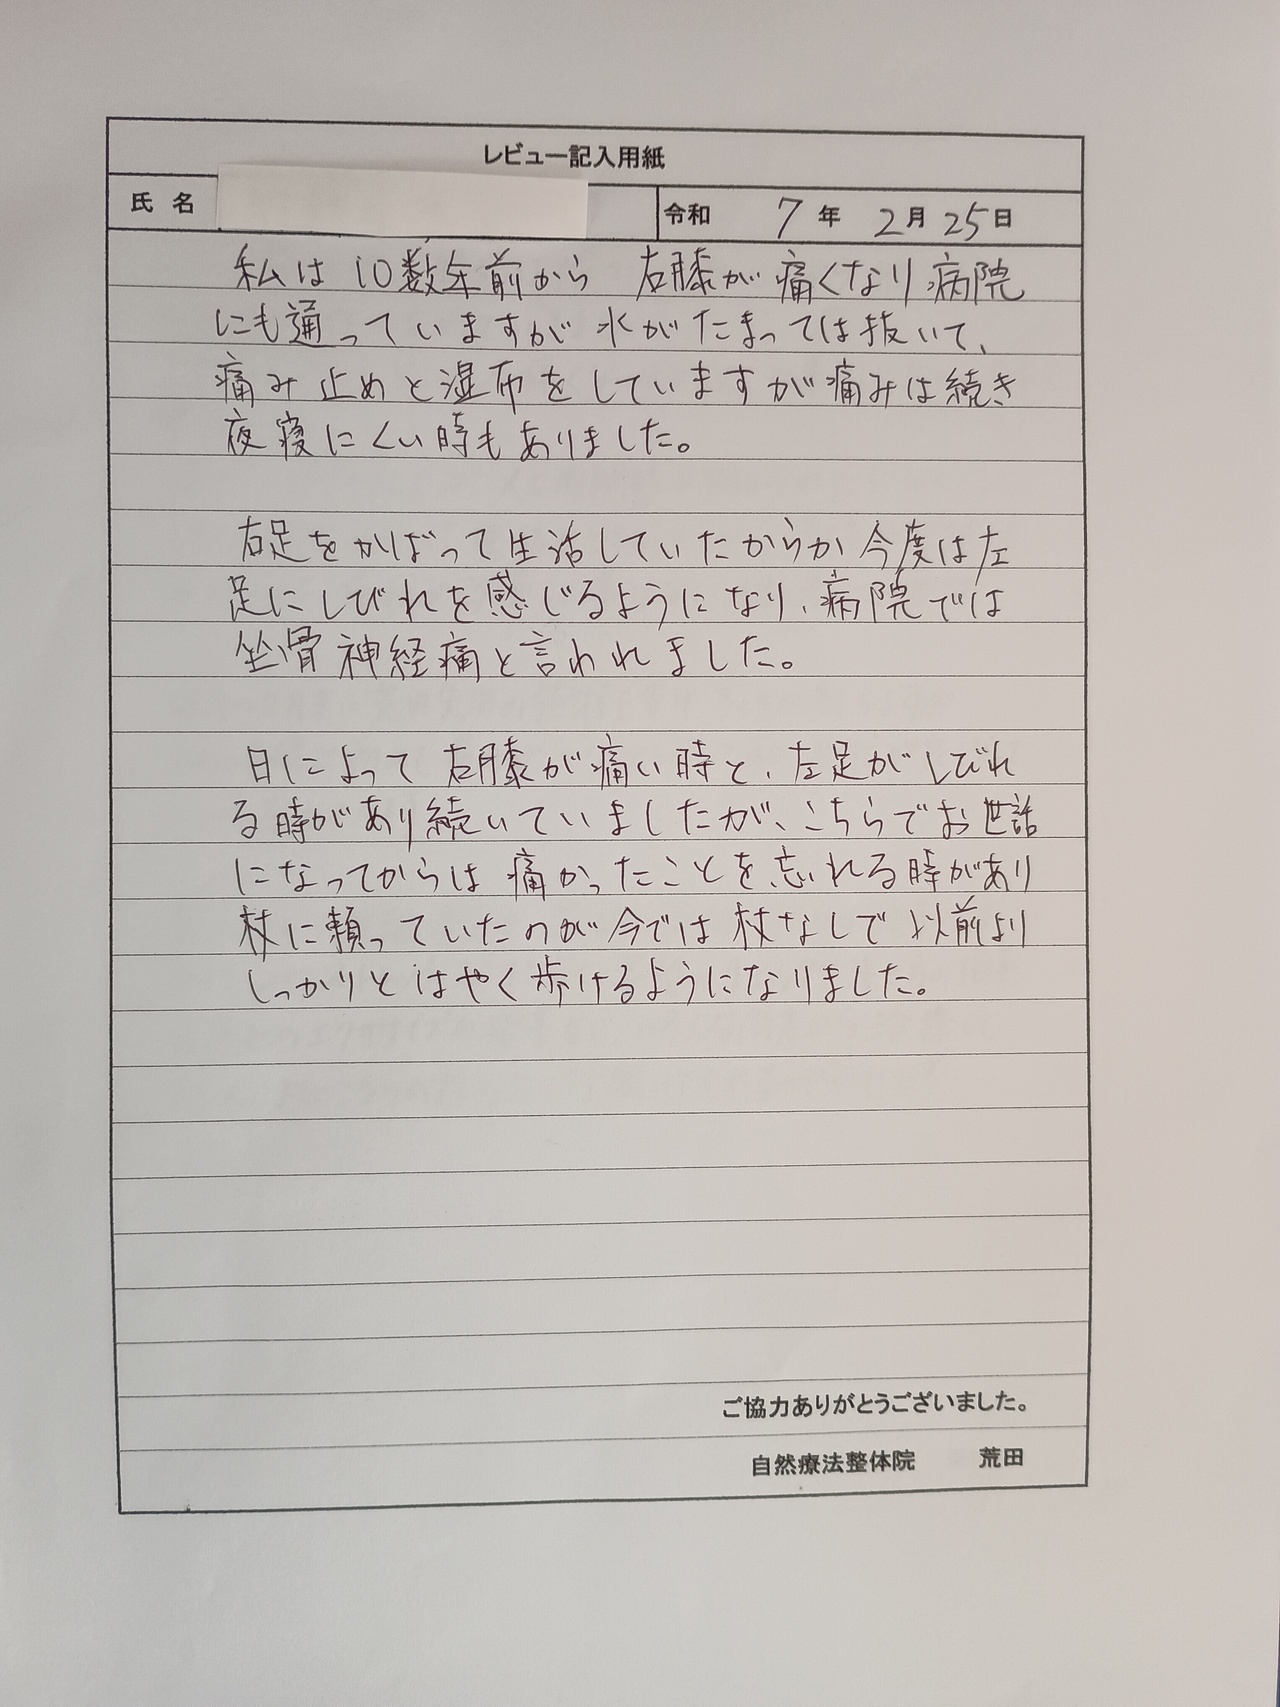 レビュー記入用紙
氏 名 令和 7 年 2 月 25 日
私は10数年前から 右膝が痛くなり病院
にも通っていますが水がたまっては抜いて、
痛み止めと湿布をしていますが痛みは続き
夜寝にくい時もありました。
右足をかばって生活していたからか今度は左
足にしびれを感じるようになり、病院では
坐骨神経痛と言われました。
日によって右膝が痛い時と、左足がしびれ
る時があり続いていましたが、こちらでお世話
になってからは痛かったことを忘れる時があり
杖に頼っていたのが今では杖なしで以前より
しっかりとはやく歩けるようになりました。
ご協力ありがとうございました。
自然療法整体院 荒田